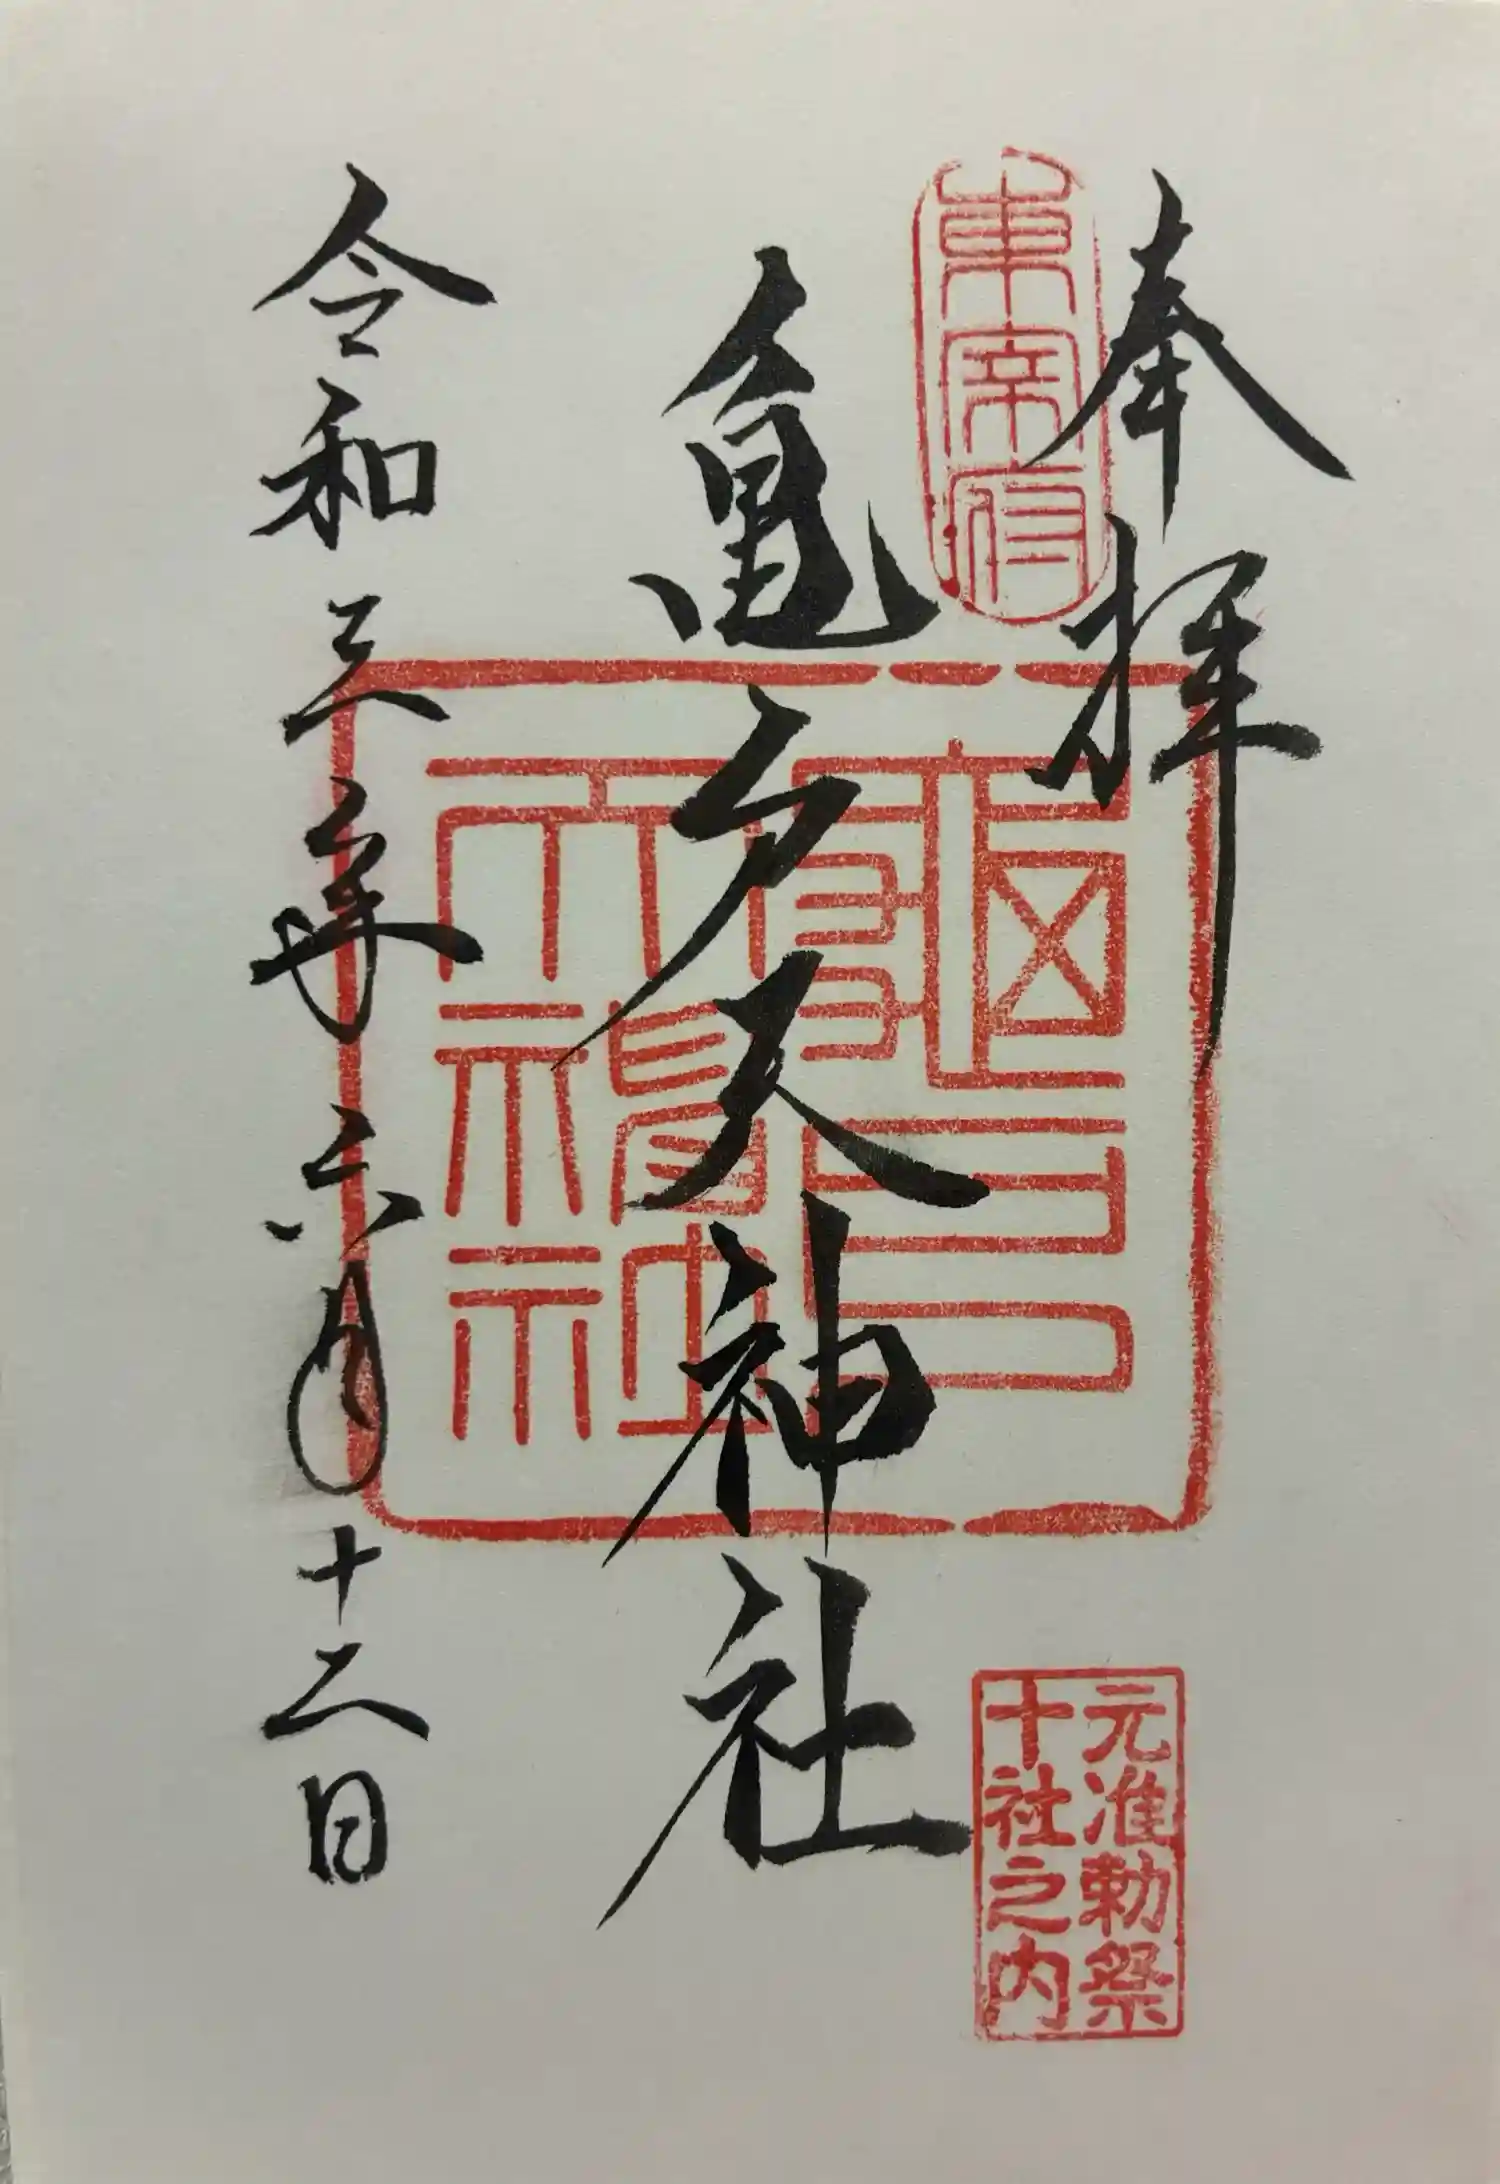 奉拝
東宰府
亀戸天神社
亀戸天神社
元准勅祭
十社之内
令和三年六月十二日